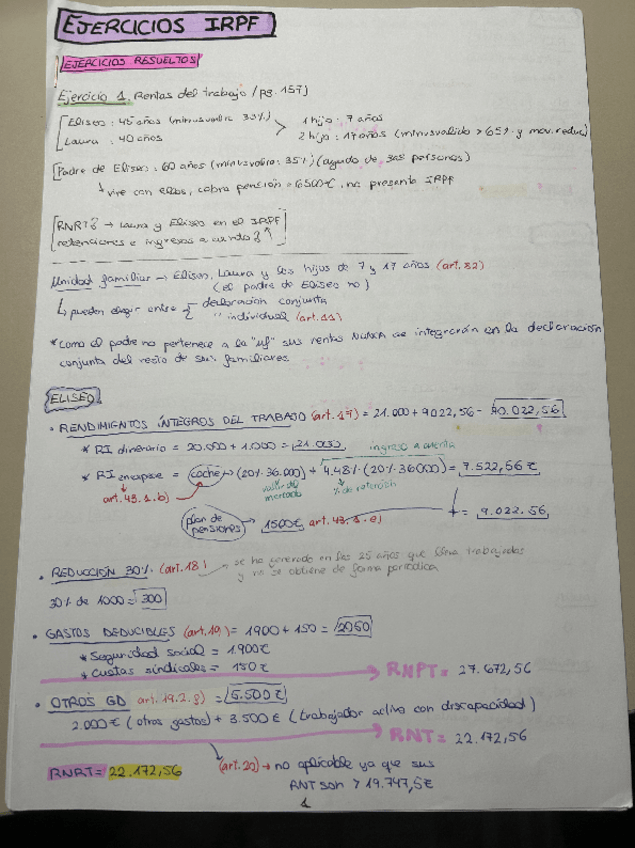 EJERCICIOS IRPF
EJERCICIOS RESUELTOS
Ejercicio 1. Rentas del trabajo (pg. 157)
Eliseo: 45 años (minusvalía 33%)
Laura: 40 años
1 hijo: 7 años
2 hijo: 17 años (minusvalido > 65% y mov. reduc)
Padre de Eliseo: 60 años (minusvalía: 35%) (ayuda de 3as personas)
↳ vive con ellos, cobra pensión = 6500€, no presenta IRPF
RNRT? → Laura y Eliseo en el IRPF
retenciones e ingresos a cuenta?
Unidad familiar → Eliseo, Laura y los hijos de 7 y 17 años (art. 82)
(el padre de Eliseo no)
↳ pueden elegir entre { declaración conjunta
" individual (art. 11)
* como el padre no pertenece a la "uf" sus rentas NUNCA se integrarán en la declaración
conjunta del resto de sus familiares.
ELISEO
• RENDIMIENTOS ÍNTEGROS DEL TRABAJO (art. 17) = 21.000 + 9022,56 = 30.022,56
* RI dinerario = 20.000 + 1.000 = 21.000
ingreso a cuenta
* RI en especie = coche → (20% 36.000) + 4.48% (20% 36000) = 7.522,56 €
art. 43.1.b)
valor de mercado
% de retención
plan de pensiones → 1500€ art. 43.1.e)
+ = 9.022.56,
• REDUCCIÓN 30% (art. 18) → se ha generado en los 25 años que lleva trabajados
y no se obtiene de forma periódica
30% de 1000 = 300
• GASTOS DEDUCIBLES (art. 19) = 1900 + 150 = 2050
* Seguridad social = 1.900€
* Cuotas sindicales = 150€
RNPT = 27.672,56
• OTROS GD art. 19.2.g) = 5.500€
2.000€ (otros gastos) + 3.500€ (trabajador activo con discapacidad)
RNT = 22.172,56
RNRT = 22.172,56
(art. 20) → no aplicable ya que sus
RNT son > 19.747,5€
1